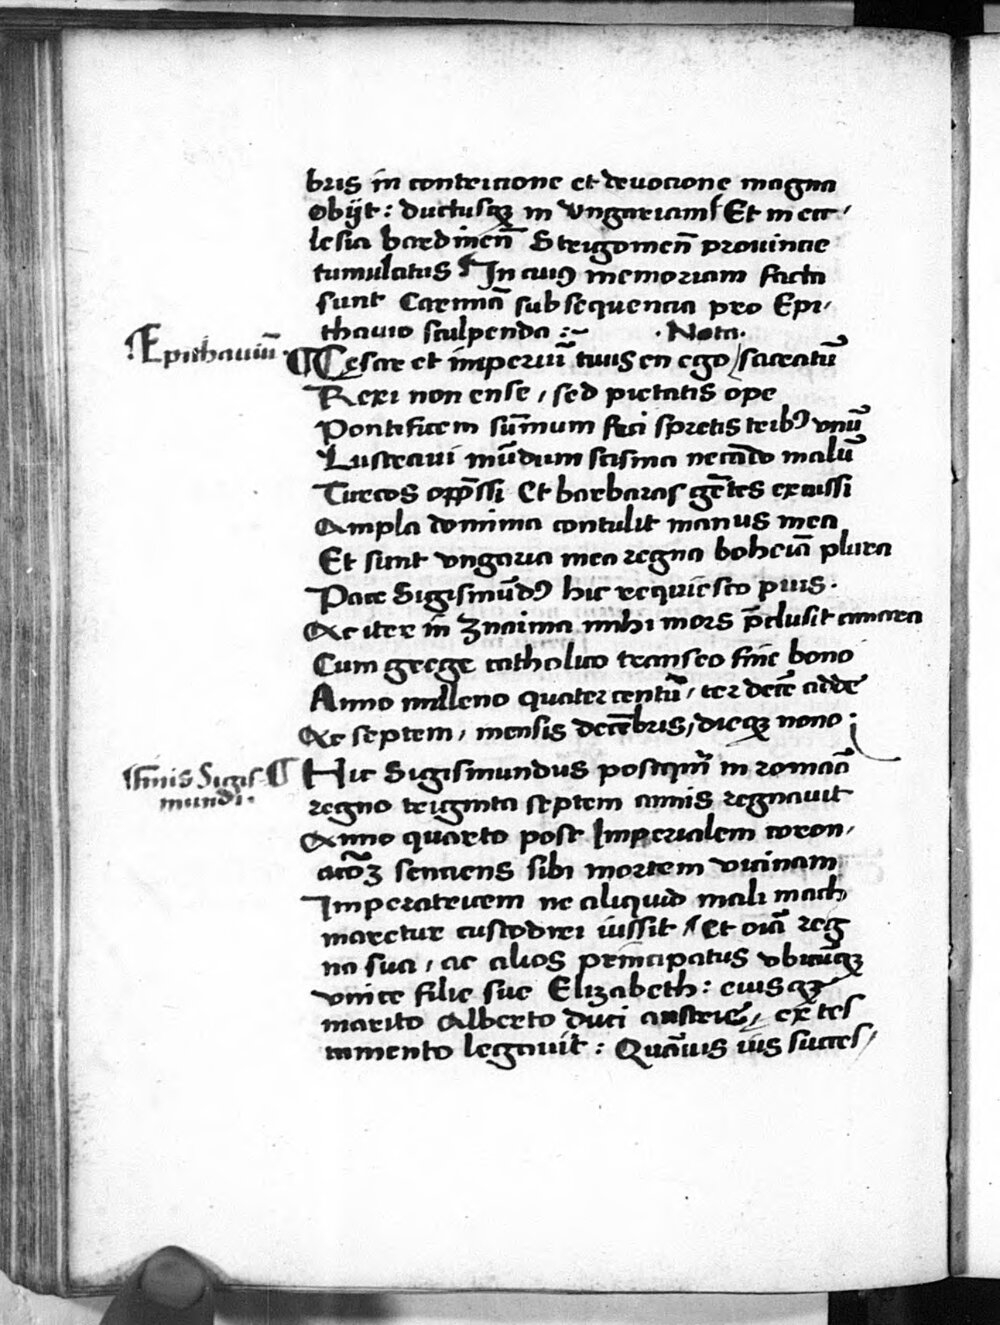 bris in contricione et deuocione magna
obijt : ductusqꝫ in vngariam Et in ecc
lesia bardineñ Strigomeñ prouincie
tumulatus In cuiꝰ memoriam facta
sunt Carmīa subsequencia pro Epi
thauio sculpenda : Nota.
Epithauiū
¶ Cesar et imperiū tuis en ego sacratū
Rexi non ense, sed pietatis ope
Pontificem sūmum feci spretis tribꝰ vnū
Lustraui mūdum scisma necādo malū
Turcos opp̄ssi Et barbaras gētes excussi
Ampla domima contulit manus mea
Et sunt vngaria mea regna boheīa plura
Pace Sigismūdꝰ hic requiesco pius .
Ac iter in Znaima mihi mors p̄clusit amara
Cum grege catholico transeo fine bono
Anno milleno quater centū, ter decē adde
Ac septem, mensis decēbris, dieqꝫ nono ;
finis Sigis
mundi.
¶ Hic Sigismundus postqm̄ in romāo
regno triginta septem annis regnauit
Anno quarto post Imperialem coron,
acōꝫ senciens sibi mortem vicinam
Imperatricem ne aliquid mali mach
maretur custodiri iussit, Et oīa reg
na sua, ac alios principatus vbicūqꝫ
vnice filie sue Elizabeth : eiusqꝫ
marito Alberto duci austrie, ex tes
tamento legauit : Quāuis ius succes,